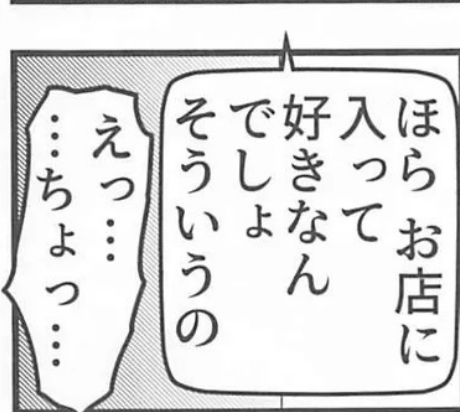 ほら お店に
入って
好きなん
でしょ
そういうの
えっ…
…ちょっ…